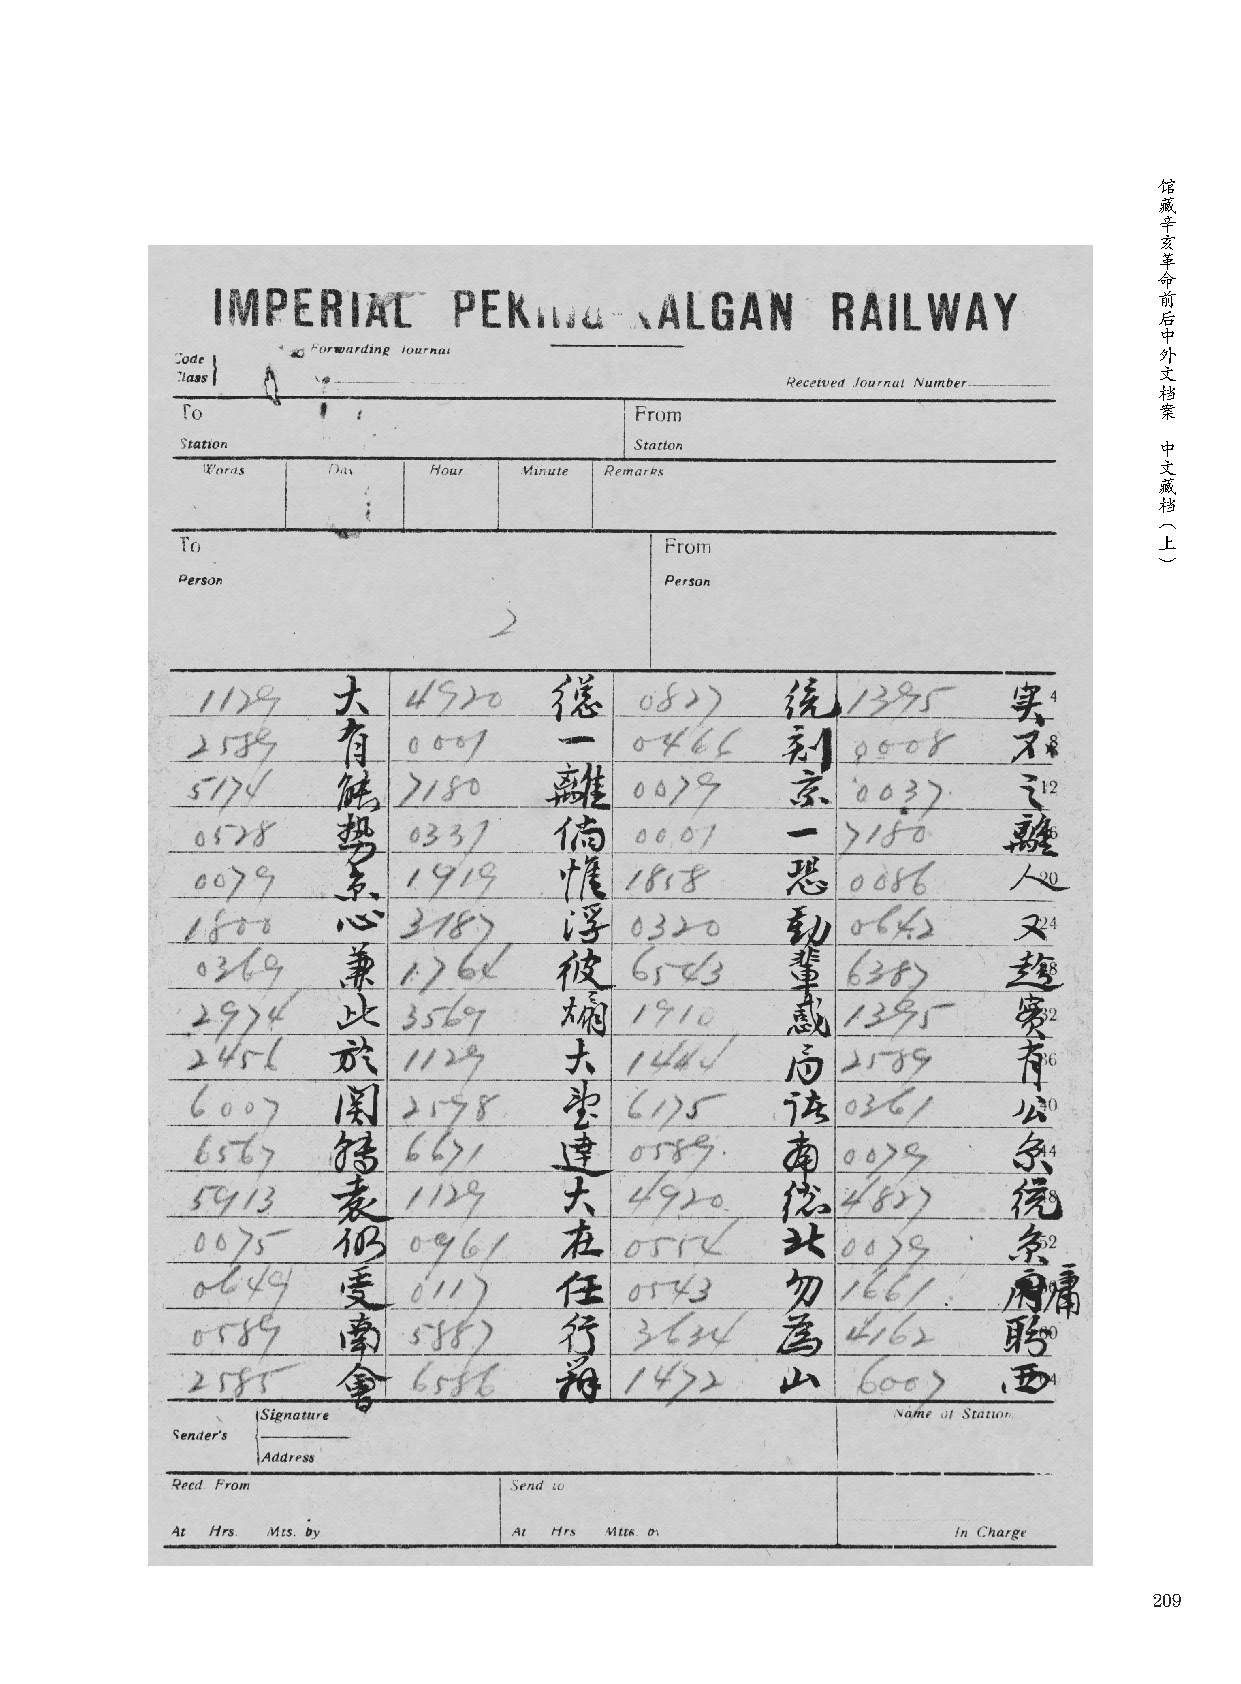 IMPERIAL PEKING KALGAN RAILWAY
Code
Class
Forwarding Journal
Received Journal Number
To
Station
From
Station
Words Day Hour Minute Remarks
To
Person
From
Person
2
1129 大 4920 總 0827 統 1395 実 4
2589 有 0001 一 0466 刻 0008 不 8
5174 能 7180 離 0079 京 0037 之 12
0528 势 0337 倘 0001 一 7180 離
0079 京 1919 惟 1858 恐 0086 人 20
1800 心 3187 浮 0320 動 0642 又 24
0369 兼 1764 彼 6543 輩 6387 趁
2974 此 3569 煽 1910 惑 1395 實 32
2456 於 1129 大 1444 局 2589 有 36
6007 関 2598 望 6175 該 0361 公 40
6567 轉 6671 達 0589 南 0079 京 44
5913 袁 1129 大 4920 總 4827 統
0075 仍 0961 在 0554 北 0079 京 52
0649 受 0117 任 0543 勿 1661 庸
0589 南 5887 行 3634 為 4162 盼 60
2585 會 6586 辦 1472 山 6007 西
Sender's
Signature
Address
Name of Station
Recd. From
At Hrs. Mts. by
Send to
At Hrs Mtts. by
In Charge
馆藏辛亥革命前后中外文档案 中文藏档（上）
209